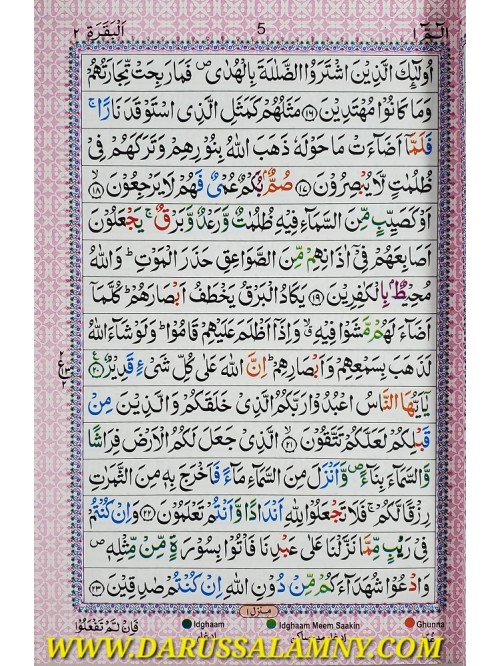 الٓمّٓ ١
5
اَلْبَقَرَة ٢
اُولٰٓئِكَ الَّذِيْنَ اشْتَرَوُا الضَّلٰلَةَ بِالْهُدٰى ۪ فَمَا رَبِحَتْ تِّجَارَتُهُمْ
وَمَا كَانُوْا مُهْتَدِيْنَ ﴿١٦﴾ مَثَلُهُمْ كَمَثَلِ الَّذِى اسْتَوْقَدَ نَارًا ۚ
فَلَمَّاۤ اَضَآءَتْ مَا حَوْلَهٗ ذَهَبَ اللّٰهُ بِنُوْرِهِمْ وَتَرَكَهُمْ فِىْ
ظُلُمٰتٍ لَّا يُبْصِرُوْنَ ﴿١٧﴾ صُمٌّۢ بُكْمٌ عُمْىٌ فَهُمْ لَا يَرْجِعُوْنَ ﴿١٨﴾
اَوْ كَصَيِّبٍ مِّنَ السَّمَآءِ فِيْهِ ظُلُمٰتٌ وَّرَعْدٌ وَّبَرْقٌ ۚ يَجْعَلُوْنَ
اَصَابِعَهُمْ فِىْۤ اٰذَانِهِمْ مِّنَ الصَّوَاعِقِ حَذَرَ الْمَوْتِ ؕ وَاللّٰهُ
مُحِيْطٌۢ بِالْكٰفِرِيْنَ ﴿١٩﴾ يَكَادُ الْبَرْقُ يَخْطَفُ اَبْصَارَهُمْ ؕ كُلَّمَاۤ
اَضَآءَ لَهُمْ مَّشَوْا فِيْهِ ۙ وَاِذَاۤ اَظْلَمَ عَلَيْهِمْ قَامُوْا ؕ وَلَوْ شَآءَ اللّٰهُ
لَذَهَبَ بِسَمْعِهِمْ وَاَبْصَارِهِمْ ؕ اِنَّ اللّٰهَ عَلٰى كُلِّ شَىْءٍ قَدِيْرٌ ﴿٢٠﴾
يٰۤاَيُّهَا النَّاسُ اعْبُدُوْا رَبَّكُمُ الَّذِىْ خَلَقَكُمْ وَالَّذِيْنَ مِنْ
قَبْلِكُمْ لَعَلَّكُمْ تَتَّقُوْنَ ﴿٢١﴾ الَّذِىْ جَعَلَ لَكُمُ الْاَرْضَ فِرَاشًا
وَّالسَّمَآءَ بِنَآءً ۪ وَّاَنْزَلَ مِنَ السَّمَآءِ مَآءً فَاَخْرَجَ بِهٖ مِنَ الثَّمَرٰتِ
رِزْقًا لَّكُمْ ۚ فَلَا تَجْعَلُوْا لِلّٰهِ اَنْدَادًا وَّاَنْتُمْ تَعْلَمُوْنَ ﴿٢٢﴾ وَاِنْ كُنْتُمْ
فِىْ رَيْبٍ مِّمَّا نَزَّلْنَا عَلٰى عَبْدِنَا فَاْتُوْا بِسُوْرَةٍ مِّنْ مِّثْلِهٖ ۪
وَادْعُوْا شُهَدَآءَكُمْ مِّنْ دُوْنِ اللّٰهِ اِنْ كُنْتُمْ صٰدِقِيْنَ ﴿٢٣﴾
٢
ع
٢
منزل ١
فَاِنْ لَّمْ تَفْعَلُوْا
Idghaam
Idghaam Meem Saakin
Ghunna
WWW.DARUSSALAMNY.COM